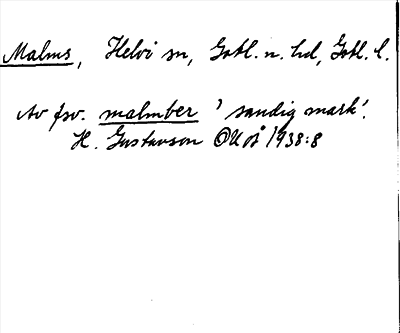 Malms, Helvi sn, Gotl. n. hd, Gotl. l.
Av fsv. malmber 'sandig mark'.
H. Gustavson OUÅ 1938:8